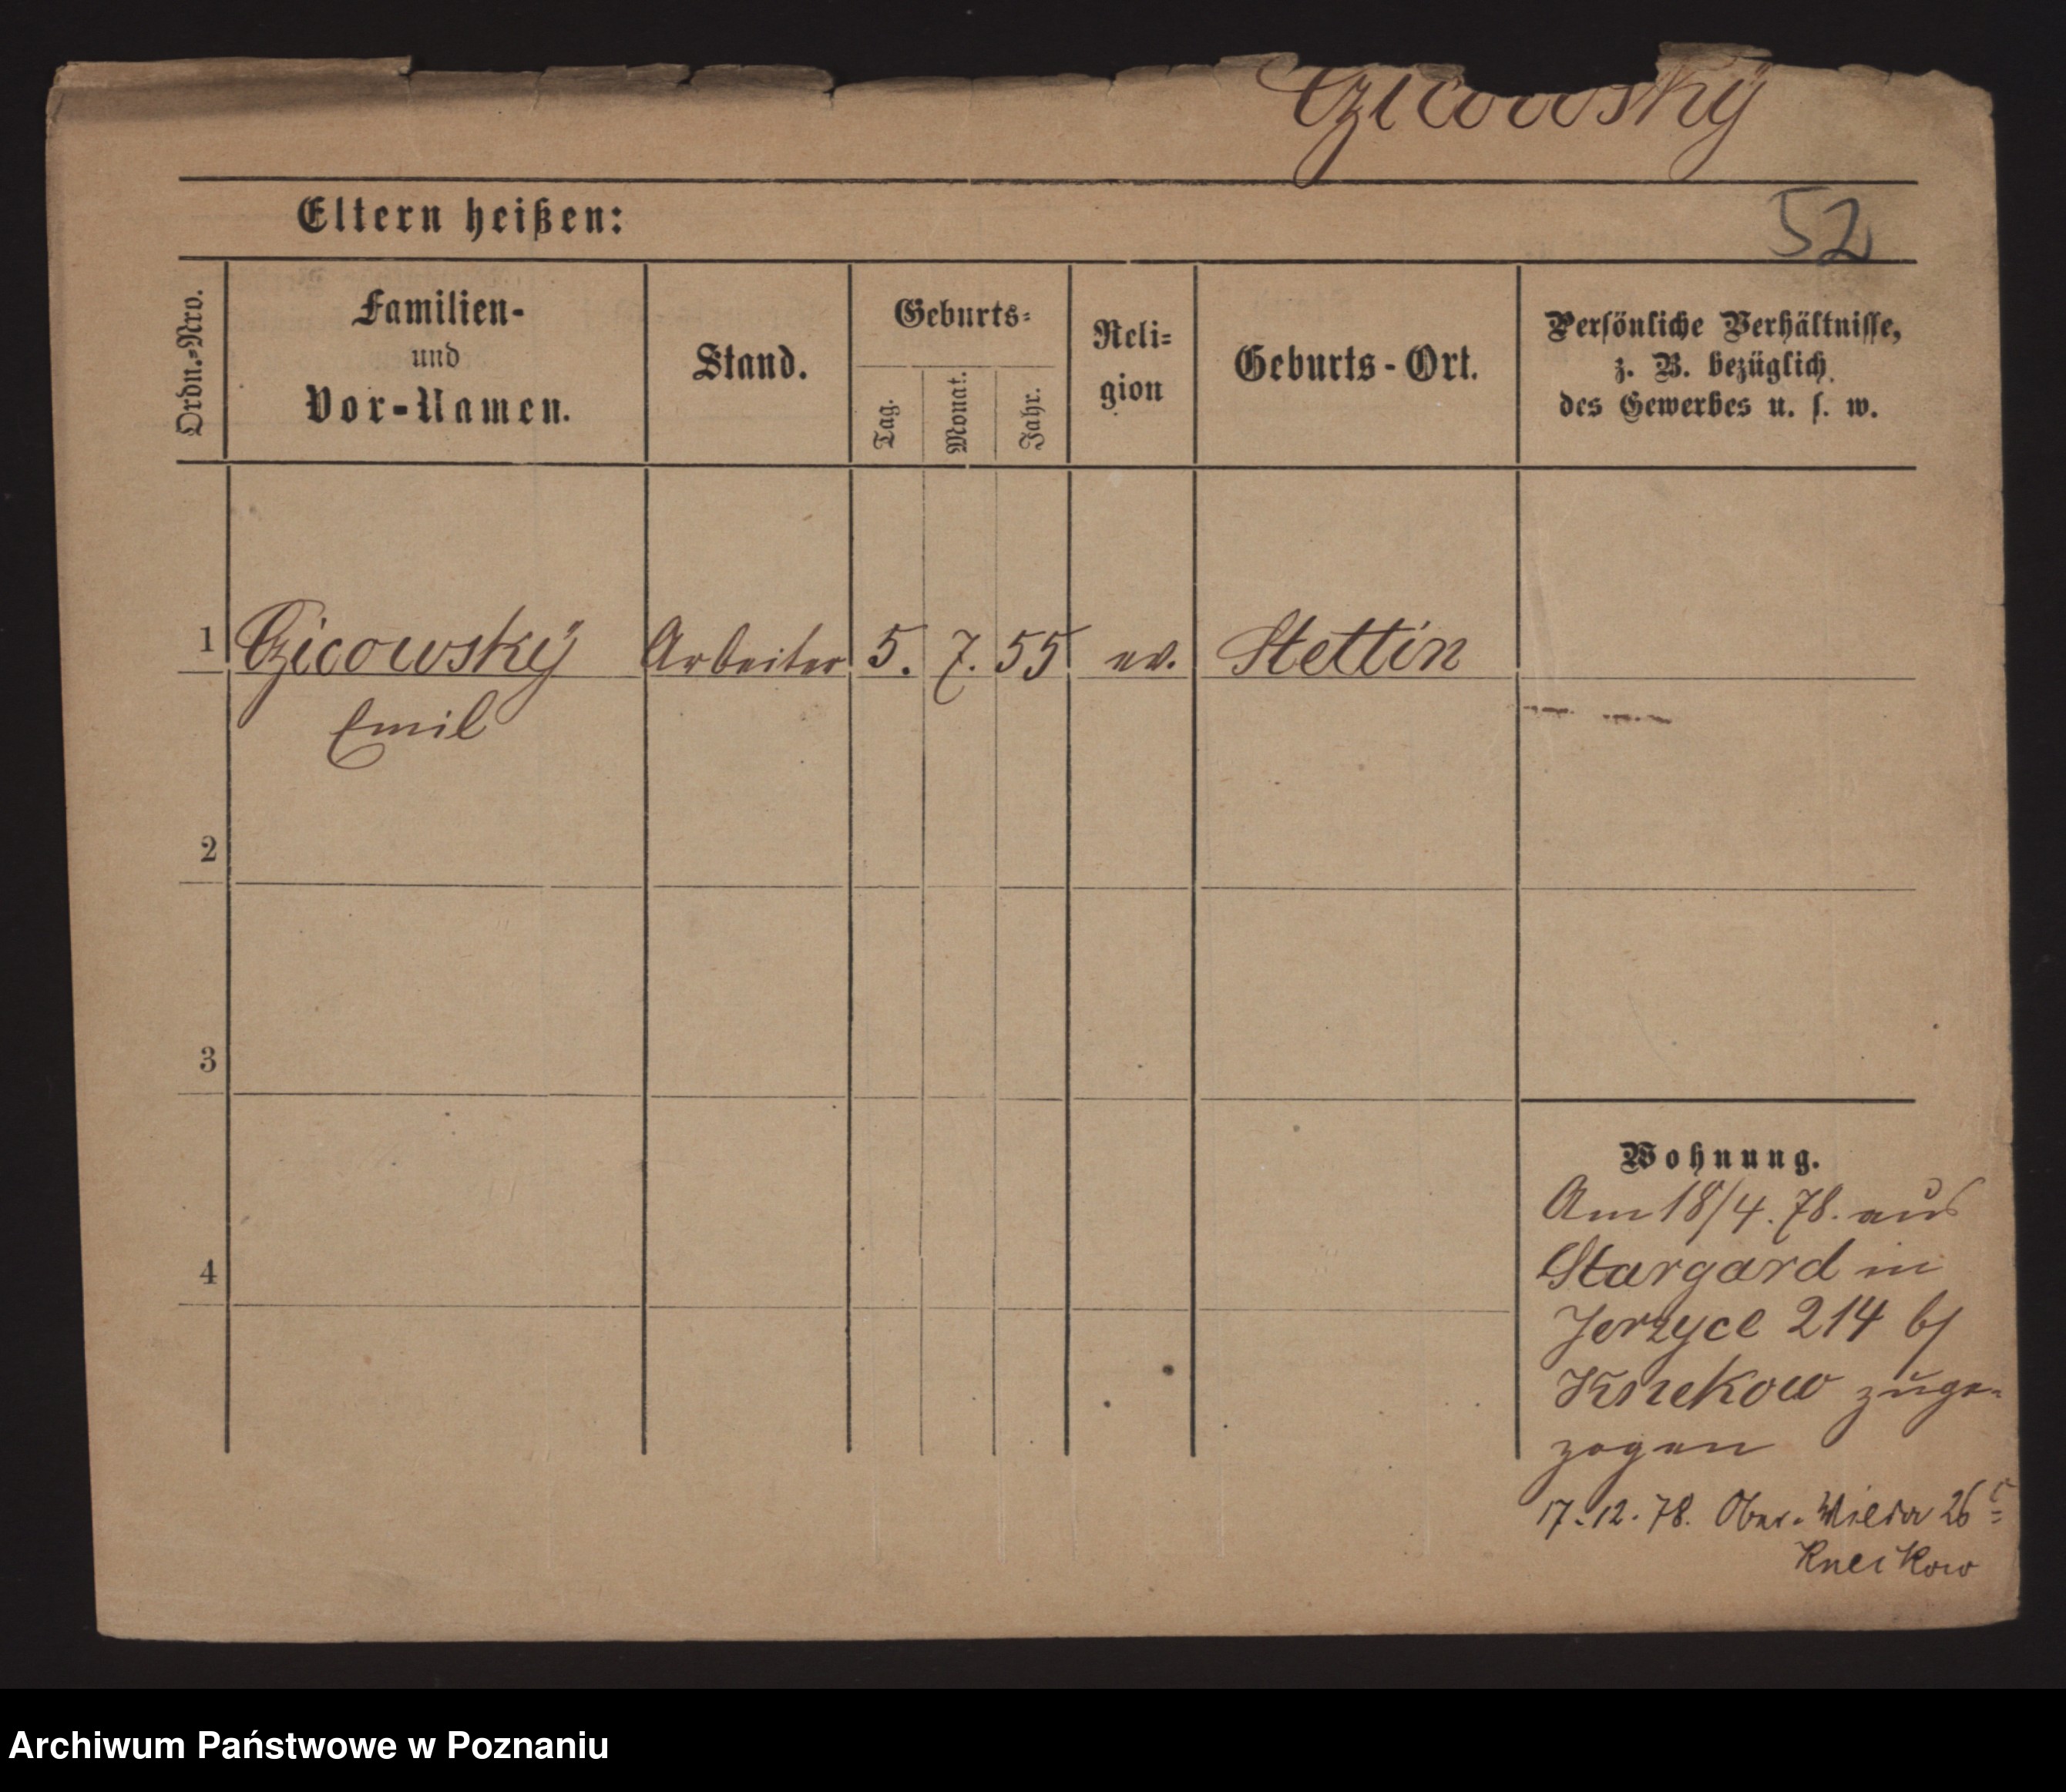 Czicowsky
52
Eltern heißen:
Ordn.-Nro.
Familien-
und
Vor-Namen.
Stand.
Geburts-
Tag.
Monat.
Jahr.
Reli-
gion
Geburts-Ort.
Persönliche Verhältnisse,
z. B. bezüglich
des Gewerbes u. s. w.
1 Czicowsky Arbeiter 5. 7. 55 ev. Stettin
Emil
2
3
4
Wohnung.
Am 18/4. 78. aus
Stargard in
Jerzyce 214 b/
Knekow zuge-
zogen
17.12.78. Ober-Wilda 26
Kneikow
Archiwum Państwowe w Poznaniu